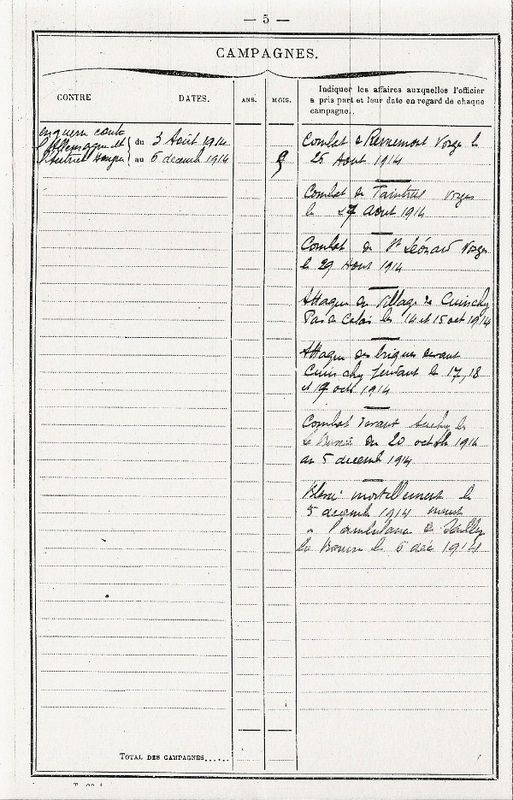 — 5 —
CAMPAGNES.
CONTRE
DATES.
ANS.
MOIS.
Indiquer les affaires auxquelles l'officier
a pris part et leur date en regard de chaque
campagne.
contre
l'Allemagne et
du 3 Août 1914
au 6 decemb 1914
Combat de Vosge le
25 Aout 1914
Combat de Taintrux Vosges
le 27 Aout 1914
Combat de St Léonard Vosges
le 29 Aout 1914
Attaque du Village de Cuinchy
Pas de Calais les 14 et 15 oct 1914
Attaque des briques devant
Cuinchy les 17, 18
et 19 oct 1914
Combat devant Auchy les
la Bassée du 20 octobre 1914
au 5 decemb 1914
Blessé mortellement le
5 decemb 1914 meurt
a l'ambulance de
la Bourse le 6 déc 1914
TOTAL DES CAMPAGNES......